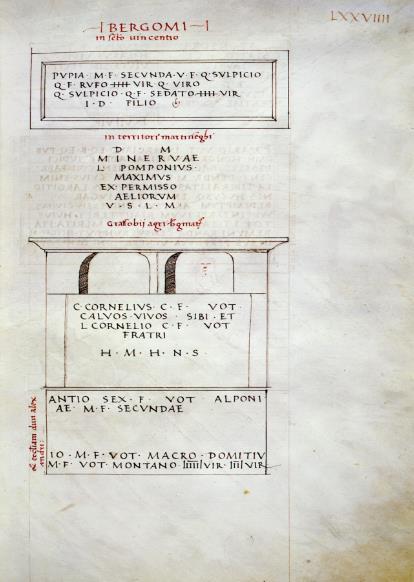 LXXVIIII
BERGOMI
in scto uincentio
PVPIA · M · F · SECVNDA · V · F · Q · SVLPICIO
Q · F · RVFO IIIIII VIR Q · VIRO
Q · SVLPICIO · Q · F · SEDATO IIIIII VIR
I · D · FILIO
in territori martinenghi
D M
MINERVAE
L · POMPONIVS
MAXIMVS
EX · PERMISSO
AELIORVM
V · S · L · M
agri
C · CORNELIVS · C · F · VOT ·
CALVOS · VIVOS · SIBI · ET
L CORNELIO C · F · VOT
FRATRI
H · M · H · N · S ·
ANTIO SEX · F · VOT ALPONI
AE · M · F · SECVNDAE
IO · M · F · VOT · MACRO · DOMITIV
M · F VOT · MONTANO · IIIIII VIR · III VIR